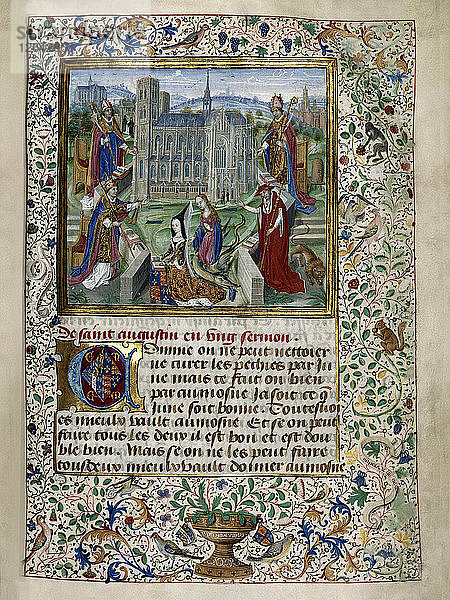 De saint augustin en ung sermon.
Comme on ne peut nettoier
ne curer les pechies par Ju
ne mais ce fait on bien
par aumosne Ja soit ce q̄
June soit bonne. Toutesfois
es mieulx vault aumosne. Et se on peut
faire tous les deux il est bon et est dou
ble bien. Mais se on ne les peut faire
tous deux mieulx vault donner aumosne